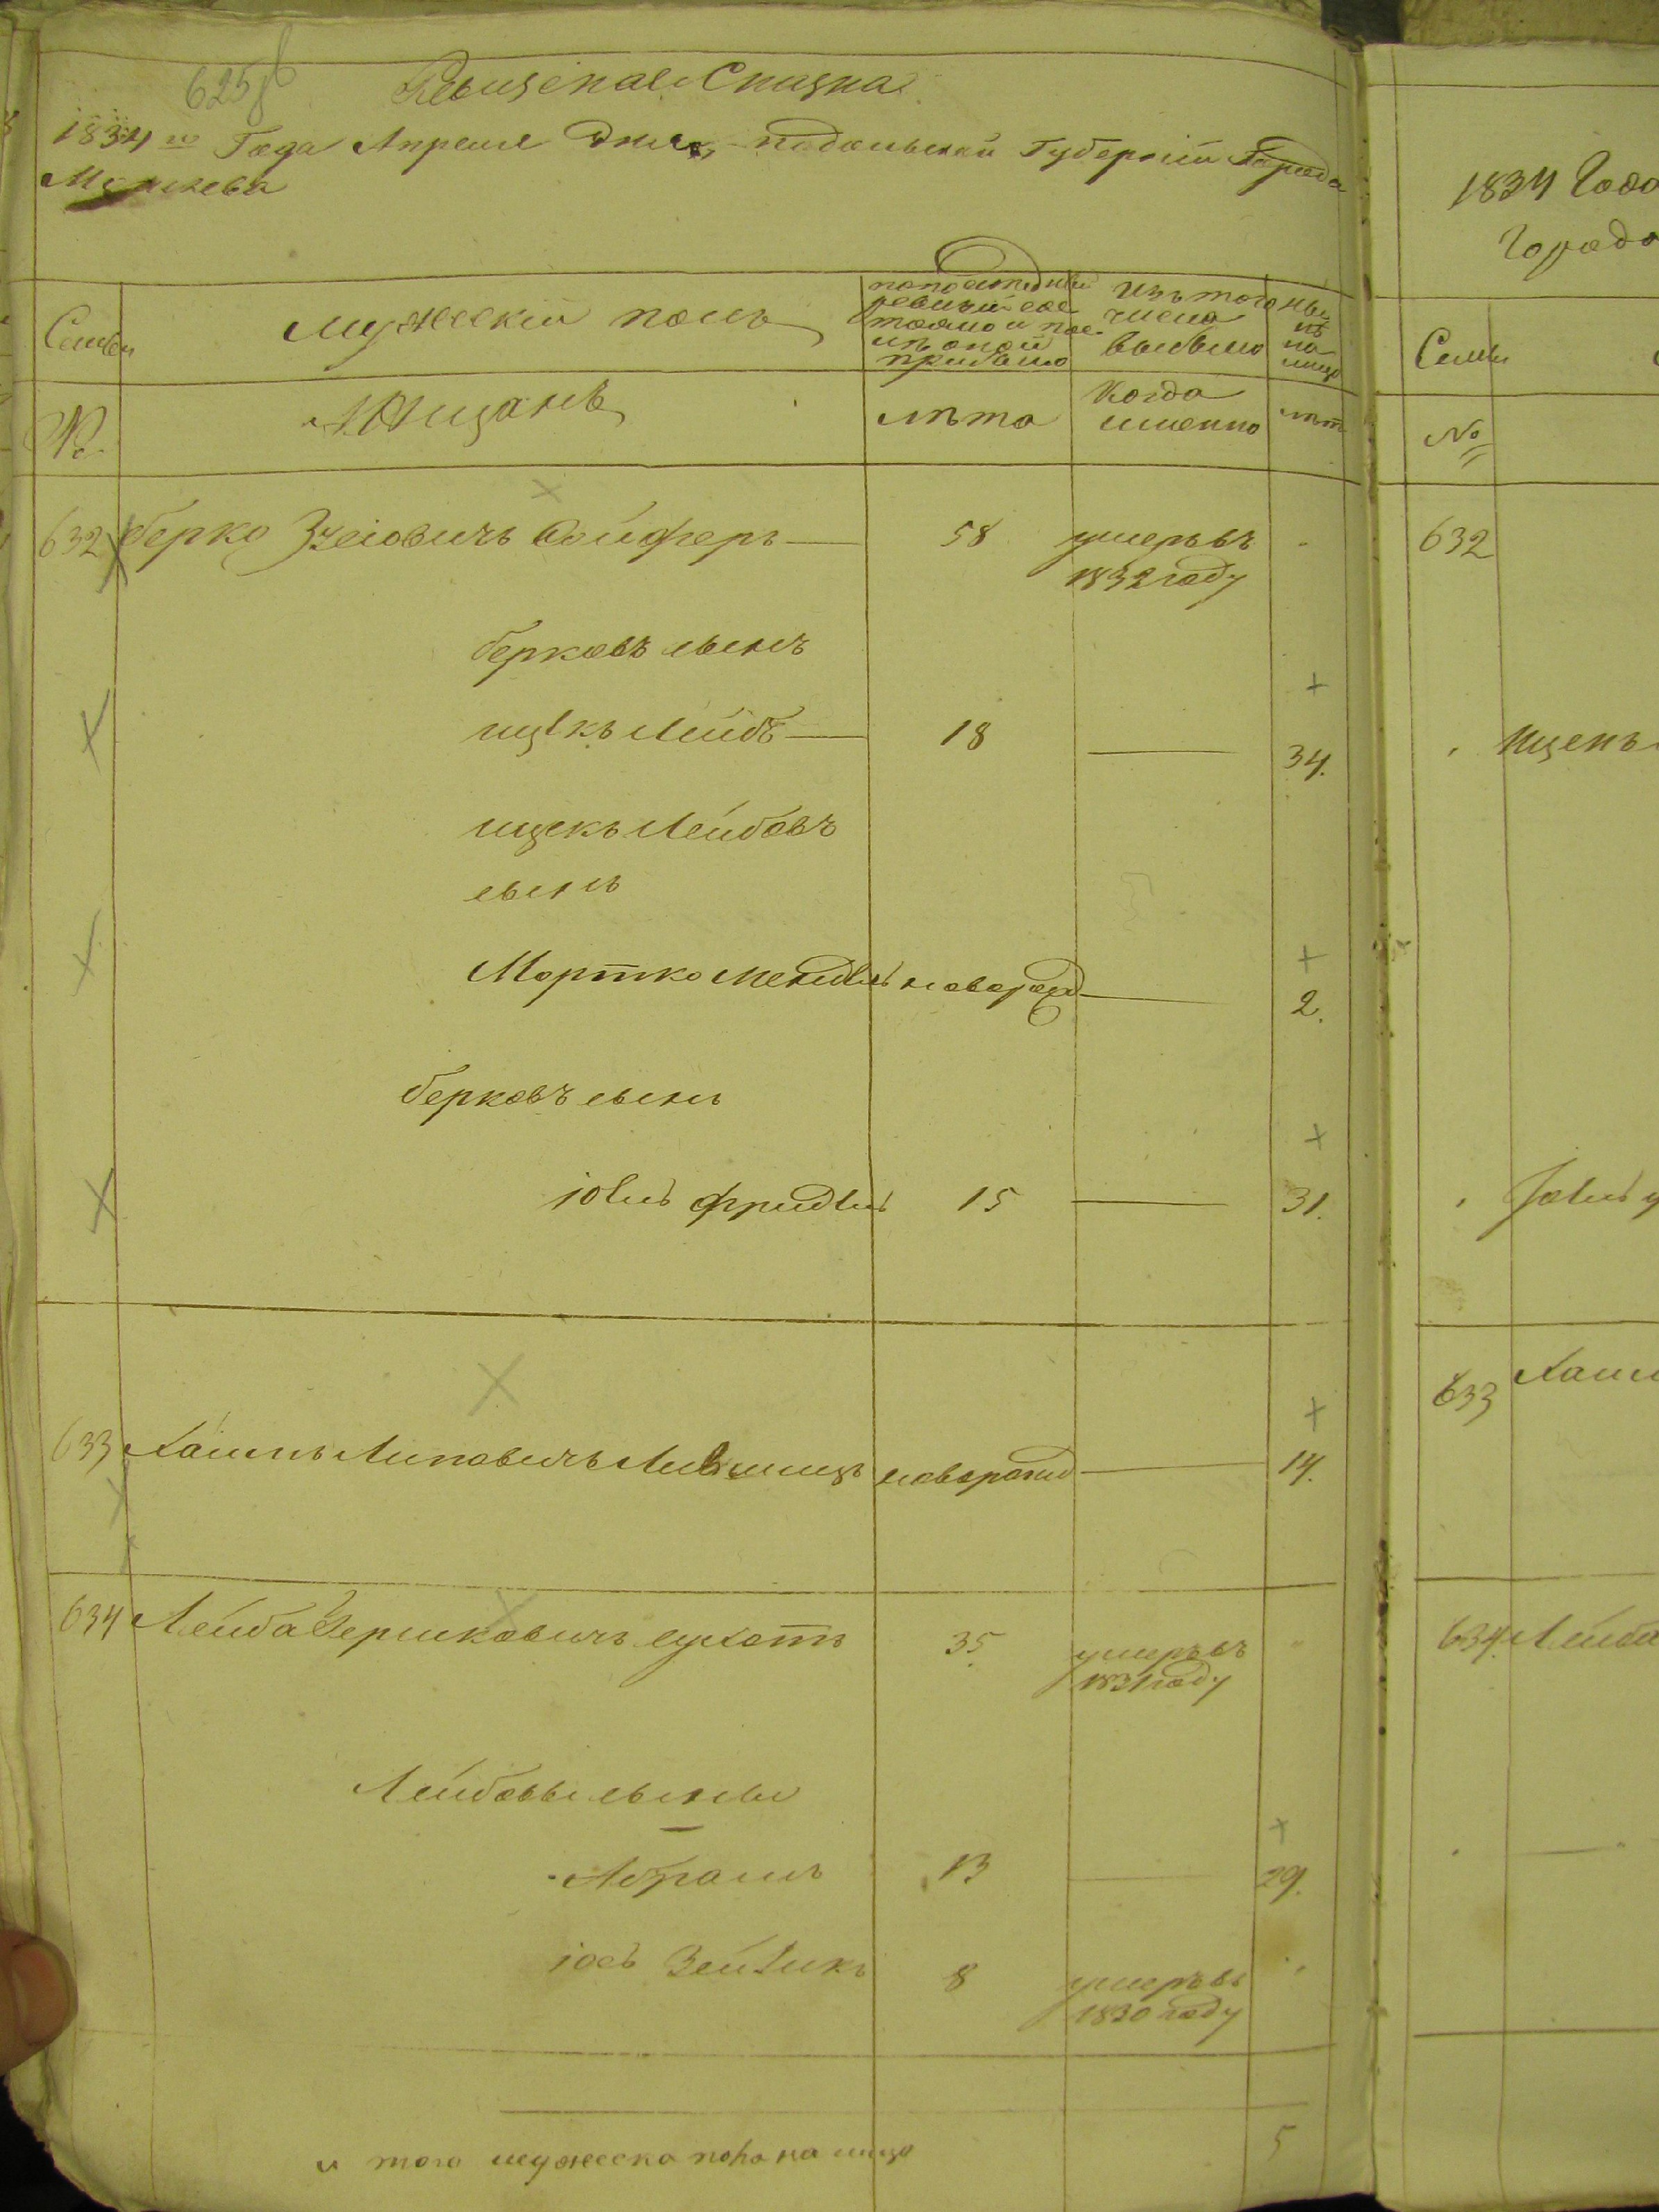 625
Ревизская Сказка
1834го Года Апреля дня, Подольской Губернии Города
Семьи
мужеский полъ
по последней ревизии состояло и после оной прибыло
Изъ того числа выбыло
ныне на лицо
№
Мещанъ
лѣта
Когда именно
лѣт
632 берко Зусіовичъ Сойферъ — 58 умеръ въ
1832 году
берковъ сынъ
ицекъ Лейбъ — 18 — 34.
ицекъ Лейбовъ
сынъ
Мортко Мендель новорожд — 2.
берковъ сынъ
іовль фридель 15 — 31.
633 Хаимъ Липовичъ Лившицъ новорожд — 14.
634 Лейба Гершковичъ 35 умеръ въ
1831 году
Лейбовы сыны
Абрамъ 13 — 29.
іось Зейликъ 8 умеръ въ
1830 году
и того мужеска пола на лицо 5
1834 Года
Города
Семьи
№
632
ицекъ
633 Хаим
634. Лейба